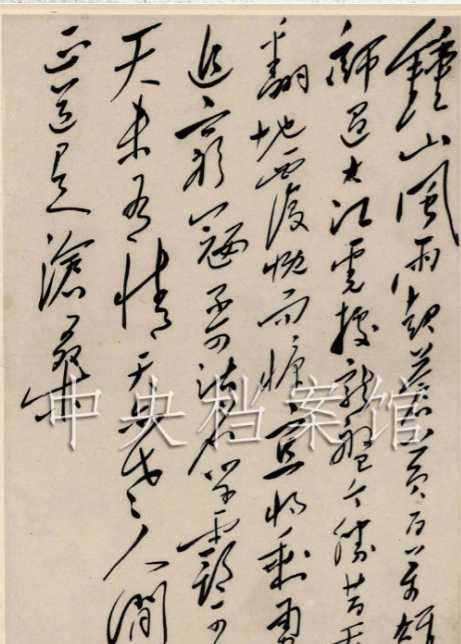 鐘山風雨起蒼黃百萬雄
師過大江虎據龍盤今勝昔天
翻地覆慨而慷宜將剩勇
追窮寇不可沽名學霸
天未有情天亦老人間
正道是滄桑
中央档案馆